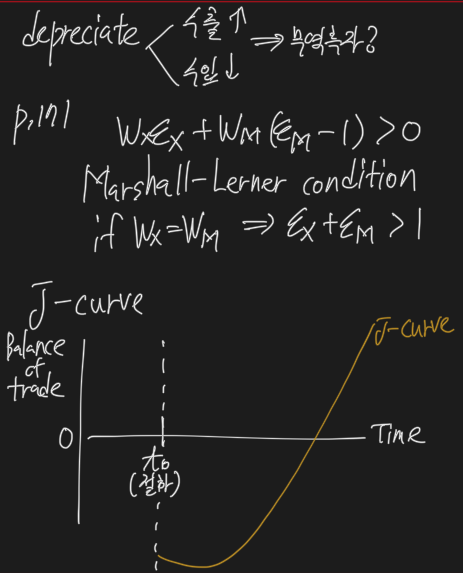 depreciate 수출↑ ⇒ 무역흑자?
수입↓
p.171
WxEx + WM(EM-1) > 0
Marshall-Lerner condition
if Wx=WM ⇒ Ex+EM > 1
J-curve
Balance of trade
J-curve
0
Time
t0
(절하)